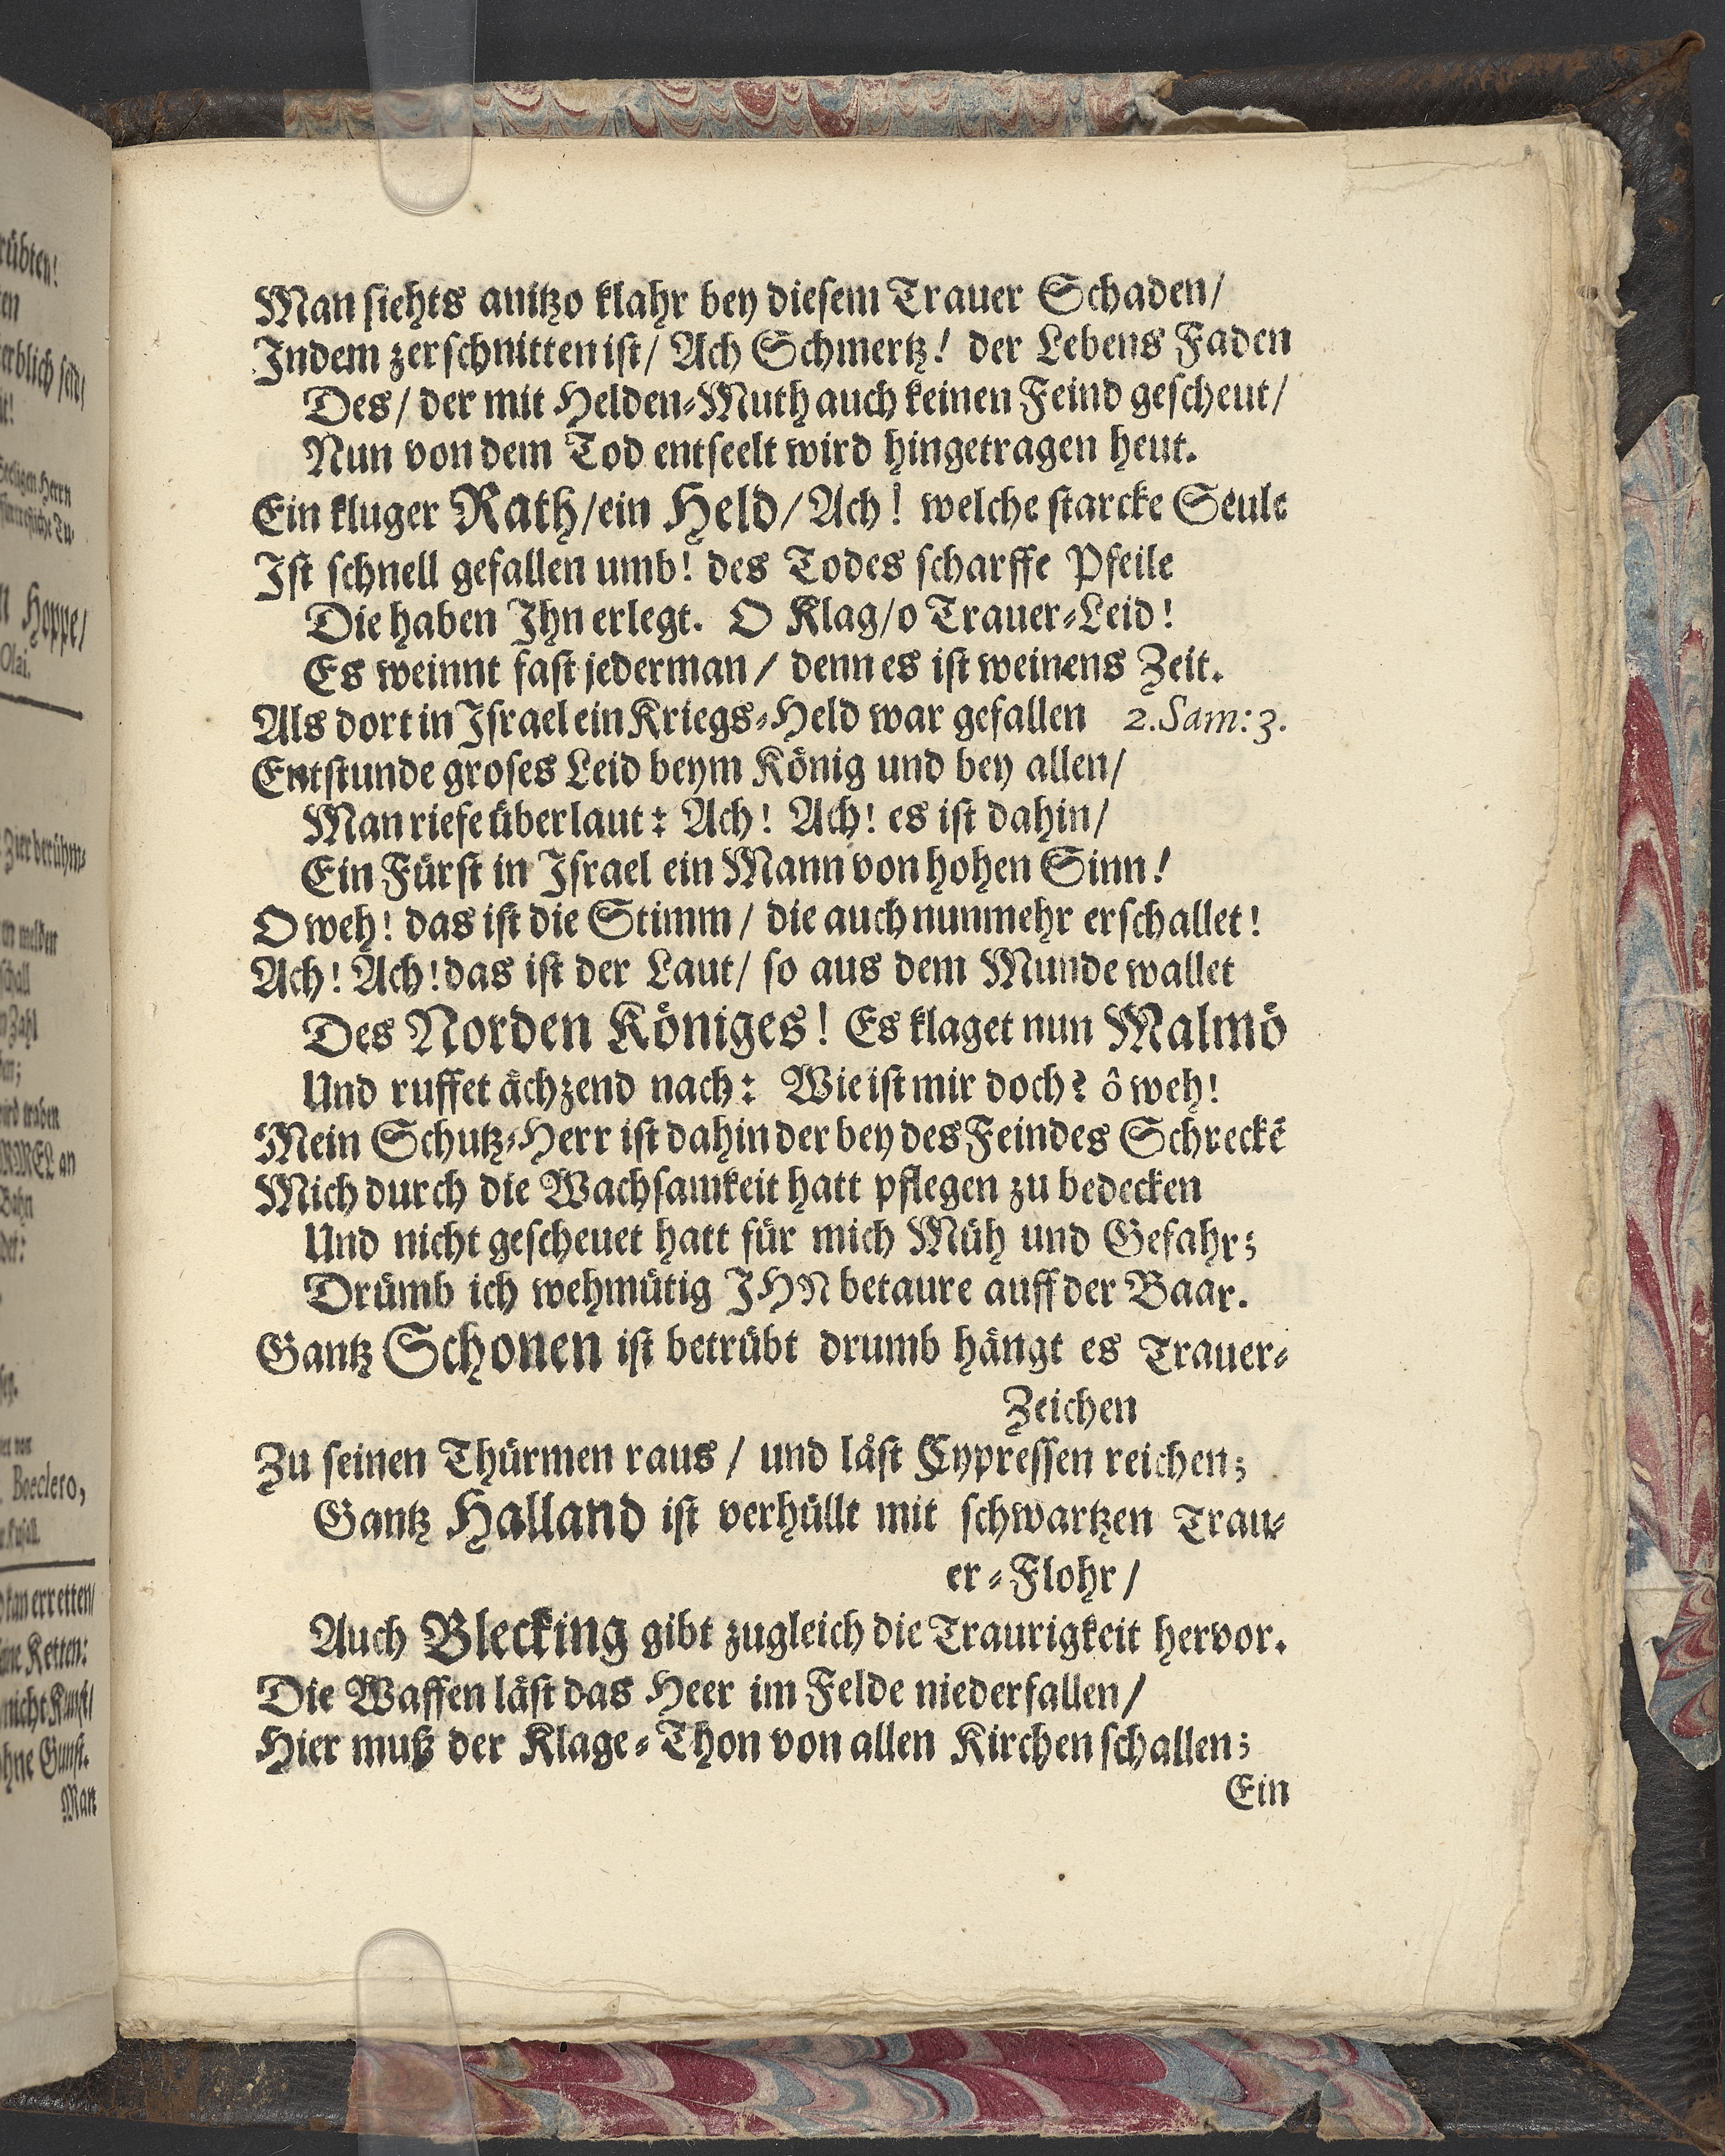 rübten!
en
erblich seid/
Seeligen Herrn
Hoppe/
Olai.
Zier berühm-
melden
schall
Zahl
wird traben
an
Bahn
Boeclero,
kan erretten/
Ketten:
nicht Kunst/
ohne Gunst.
Man
Man siehts anitzo klahr bey diesem Trauer Schaden/
Indem zerschnitten ist/ Ach Schmertz! der Lebens Faden
Des/ der mit Helden-Muth auch keinen Feind gescheut/
Nun von dem Tod entseelt wird hingetragen heut.
Ein kluger Rath/ein Held/Ach! welche starcke Seule
Ist schnell gefallen umb! des Todes scharffe Pfeile
Die haben Ihn erlegt. O Klag/o Trauer-Leid!
Es weinnt fast jederman/ denn es ist weinens Zeit.
Als dort in Israel ein Kriegs-Held war gefallen 2.Sam:3.
Entstunde groses Leid beym König und bey allen/
Man riefe überlaut: Ach! Ach! es ist dahin/
Ein Fürst in Israel ein Mann von hohen Sinn!
O weh! das ist die Stimm/ die auch nunmehr erschallet!
Ach! Ach! das ist der Laut/ so aus dem Munde wallet
Des Norden Königes! Es klaget nun Malmö
Und ruffet ächzend nach: Wie ist mir doch? ô weh!
Mein Schutz-Herr ist dahin der bey des Feindes Schreckē
Mich durch die Wachsamkeit hatt pflegen zu bedecken
Und nicht gescheuet hatt für mich Müh und Gefahr;
Drümb ich wehmütig IHN betaure auff der Baar.
Gantz Schonen ist betrübt drumb hängt es Trauer-
Zeichen
Zu seinen Thürmen raus/ und läst Cypressen reichen;
Gantz Halland ist verhüllt mit schwartzen Trau-
er-Flohr/
Auch Blecking gibt zugleich die Traurigkeit hervor.
Die Waffen läst das Heer im Felde niederfallen/
Hier muß der Klage-Thon von allen Kirchen schallen;
Ein